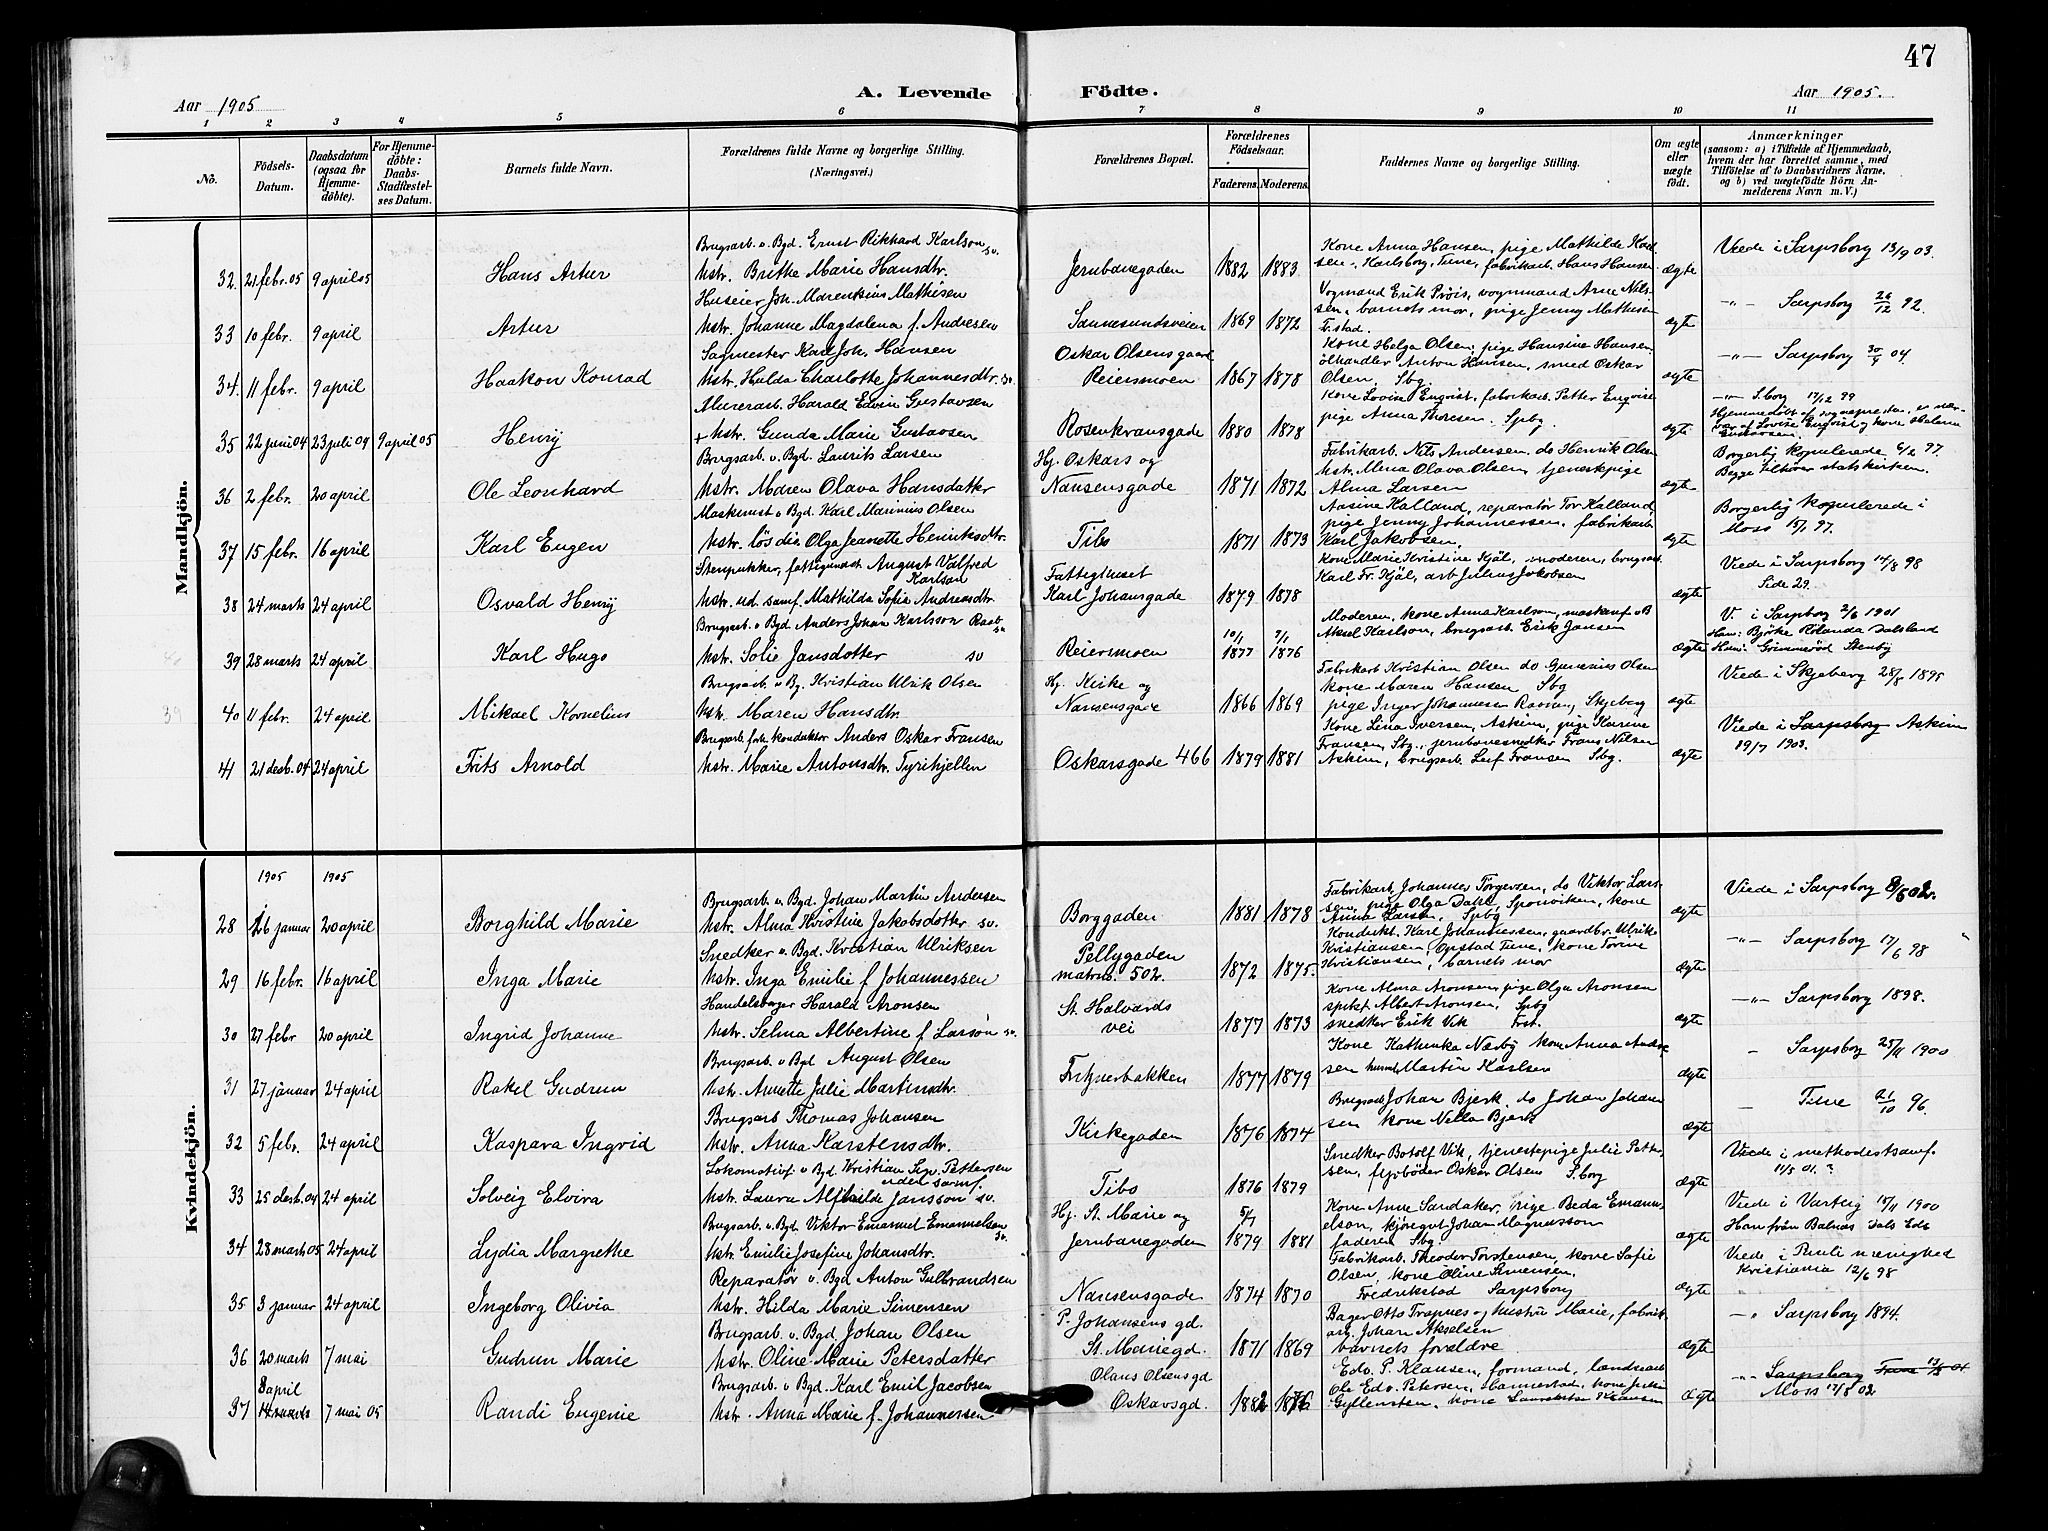 47
Aar 1905
A. Levende Födte.
Aar 1905.
1 2 3 4 5 6 7 8 9 10 11
No.
Födsels-Datum.
Daabsdatum (ogsaa for Hjemmedöbte).
For Hjemmedöbte: Daabs-Stadfæstelses Datum.
Barnets fulde Navn.
Forældrenes fulde Navne og borgerlige Stilling.
(Næringsvei.)
Forældrenes Bopæl.
Forældrenes Födselsaar.
Faderens. Moderens.
Faddernes Navne og borgerlige Stilling.
Om ægte eller uægte födt.
Anmærkninger
(saasom: a) i Tilfælde af Hjemmedaab, hvem der har forrettet samme, med Tilföielse af to Daabsvidners Navne, og b) ved uægtefödte Börn Anmelderens Navn m. V.)
Mandkjön.
Brugsarb. v. Bgd. Ernst Rikhard Karlson sv.
Kone Anna Hansen, pige Mathilde Karl-
32. 21 febr. 05 9 april 05 Hans Artur Hstr. Brithe Marie Hansdtr. Jernbanegaden 1882 1883 sen, Karlsborg, Tune, fabrikarb. Hans Hansen ægte Viede i Sarpsborg 13/9 03.
Huseier Joh. Marenkius Mathisen
Vogmand Erik Prøis, vognmand Arne Nils-
33 10 febr. 9 april Artur Hstr. Johanne Magdalena f. Andresen Sannesundsveien 1869 1872 sen, barnets mor, pige Jenny Mathisen Fr.stad. ægte -"- Sarpsborg 26/12 92.
Sagmester Karl Joh. Hansen Oskar Olsens gaard
Kone Helga Olsen, pige Hansine Hansen
ølhandler Anton Hansen, smed Oskar
34. 11 febr. 9 april Haakon Konrad Hstr. Hulda Charlotte Johannesdtr. sv. Reiersmoen 1867 1878 Olsen, Sbg. ægte -"- Sarpsborg 30/9 04.
Murerarb. Harald Edvin Gustavsen
Kone Lovise Enqvist, fabrikarb. Petter Enqvist
35 22 juni 04 23 juli 04 9 april 05 Henry + Hstr. Gunda Marie Gustavsen Rosenkransgade 1880 1878 pige Anna Thoresen, Spbg. ægte -"- S.borg 17/12 99
Hjemmedøbt af sognepresten,
Lovise Enqvist og kone
Brugsarb. v. Bgd. Laurits Larsen Hj. Oskars og
Fabrikarb. Nils Andersen, do Henrik Olsen
Hstr. Alma Olava Olsen, tjenestepige
36 2 febr. 20 april Ole Leonhard Hstr. Maren Olava Hansdatter Nansensgade 1871 1872 Alma Larsen ægte Borgerlig kopulerede 6/2 97.
Begge tilhører statskirken.
Maskinist v. Bgd. Karl Marinius Olsen
Aasine Kalland, reparatør Tor Kalland,
pige Jenny Johannessen, fabrikarb.
37 15 febr. 16 april Karl Eugen Hstr. løs dia Olga Jeanette Henriksdtr. Tibo 1871 1873 Karl Jakobsen. ægte Borgerlig kopulerede i Moss 15/7 97.
Stenpukker, fattigunderst. August Valfred Karlson Fattighuset
Kone Marie Kristine Kjøl, moderen, brugsarb.
Karl Fr. Kjøl, arb Julius Jakobsen
38 24 marts 24 april Osvald Henry Hstr. ud. samf. Mathilda Sofia Andreasdtr. Karl Johansgade 1879 1878 ægte Viede i Sarpsborg 14/8 98
Side 29.
Brugsarb. v Bgd. Anders Johan Karlsson Raab sv.
Moderen, kone Anna Karlson, maskinf. v B
39 28 marts 24 april Karl Hugo Hstr. Sofie Jansdotter sv Reiersmoen 10/1 1877 9/1 1876 Aksel Karlson, brugsarb. Erik Jansen ægte V. i Sarpsborg 2/6 1901
Ham: Bjørke Rölanda Dalsland
Hun: Grimmerød Stenby
Brugsarb. v Bg. Kristian Ulrik Olsen Hj. Kirke og
Fabrikarb. Kristian Olsen do Gunerius Olsen
kone Maren Hansen Sbg
39 40 11 febr. 24 april Mikael Kornelius Hstr. Maren Hansdtr. Nansensgade 1866 1869 pige Inger Johannessen Ravnen, Skjeberg ægte Viede i Skjeberg 28/8 1895
Brugsarb. forh. konduktør Anders Oskar Fransen
Kone Lina Iversen, Askim, pige Karine
Fransen, Sbg., jernbanesnedker Frans Nilsen
41 21 desb. 04 24 april Frits Arnold Hstr. Marie Antonsdtr. Tyrihjellen Oskarsgade 466 1879 1881 Askim, brugsarb. Leif Fransen Sbg. ægte Viede i Sarpsborg Askim
19/7 1903.
Kvindekjön.
1905 1905
Brugsarb. v Bgd. Johan Martin Andersen
Fabrikarb. Johannes Torgersen, do Viktor Lars-
sen, pige Olga Dahl, Sponviken, kone
28 26 januar 20 april Borghild Marie Hstr. Alma Kristine Jakobsdotter sv. Borggaden 1881 1878 Anna Larsen, Spbg ægte Viede i Sarpsborg 8/6 02.
Snedker v. Bgd. Kristian Ulriksen Pellygaden
Kondukt. Karl Johannessen, gaardbr. Ulrik
Kristiansen, Opstad Tune, kone Torine
29 16 febr. 16 april Inga Marie Hstr. Inga Emilie f Johannessen matrno. 502. 1872 1875. Kristiansen, barnets mor ægte -"- Sarpsborg 17/6 98
Handelsborger Harald Aronsen St. Halvards
Kone Alma Aronsen, pige Olga Aronsen
Albert Aronsen, Spbg
30 27 febr 20 april Ingrid Johanne Hstr. Selma Albertine f Larson sv. vei 1877 1873 snedker Erik Vik Frst. ægte -"- Sarpsborg 1898.
Brugsarb. v Bgd August Olsen
Kone Kathinka Næsby kone Anna Andre
31 27 januar 24 april Rakel Gudrun Hstr. Anette Julie Martinsdtr. Fritznerbakken 1877 1879 sen Martin Karlsen ægte - Sarpsborg 25/11 1900
Brugsarb Thomas Johansen
Brugsarb Johan Bjerk, do Johan Johan
32 5 febr. 24 april Kaspara Ingrid Hstr. Anna Karstensdtr. Kirkegaden 1876 1874 sen kone Nella Bjerk ægte - Tune 21/10 96.
Lokomotivf. v Bgd. Kristian Sig. Pettersen uden samf.
Snedker Botolf Vik, tjenestepige Julie Petter-
33 25 desb. 04 24 april Solveig Elvira Hstr. Laura Alfhilde Jansson sv. Tibo 1876 1879 sen, fyrbøder Oskar Olsen S.borg ægte Viede i methodistsamf.
11/5 01.?
Brugsarb. v. Bgd. Viktor Emanuel Emanuelson sv. Hj. St. Marie og
Kone Anne Sandaker, pige Beda Emanu-
elson, kjørgut Johan Magnusson
34 28 marts 05 24 april Lydia Margrethe Hstr. Emilie Josefine Johansdtr. Jernbanegaden 5/7 1879 1881 faderen Sbg. ægte Viede i Varteig 18/11 1900
Han från Balnäs Dals Edb
Reparatør v. Bgd Anton Gulbrandsen
Fabrikarb. Theodor Torstensen, kone Sofie
Olsen, kone Oline Simensen,
35 3 januar 24 april Ingeborg Olivia Hstr. Hilda Marie Simensen Nansensgade 1874 1870 Fredrikstad Sarpsborg ægte Viede i Pauli menighed
Kristiania 12/6 98
Brugsarb. v. Bgd. Johan Olsen P. Johansens gd.
Bager Otto Trapnes og hustru Marie, fabrik-
arb. Johan Akselsen
36 20 marts 7 mai Gudrun Marie Hstr. Oline Marie Petersdatter St. Mariegd. 1871 1869 barnets forældre ægte -" Sarpsborg 1894.
8 april
Brugsarb. v Bgd. Karl Emil Jacobsen Olaus Olsensgd
Edv. P. Klausen, formand,
Ole Edv. Petersen, Hannestad, kone
37 14 marts 7 mai 05 Randi Eugenie Hstr. Anna Marie f. Johannessen Oskarsgd. 1882 1876 Gyllensten, kone Hansen Ægte -"- Sarpsborg Tune 13/5 01
Moss 17/8 02